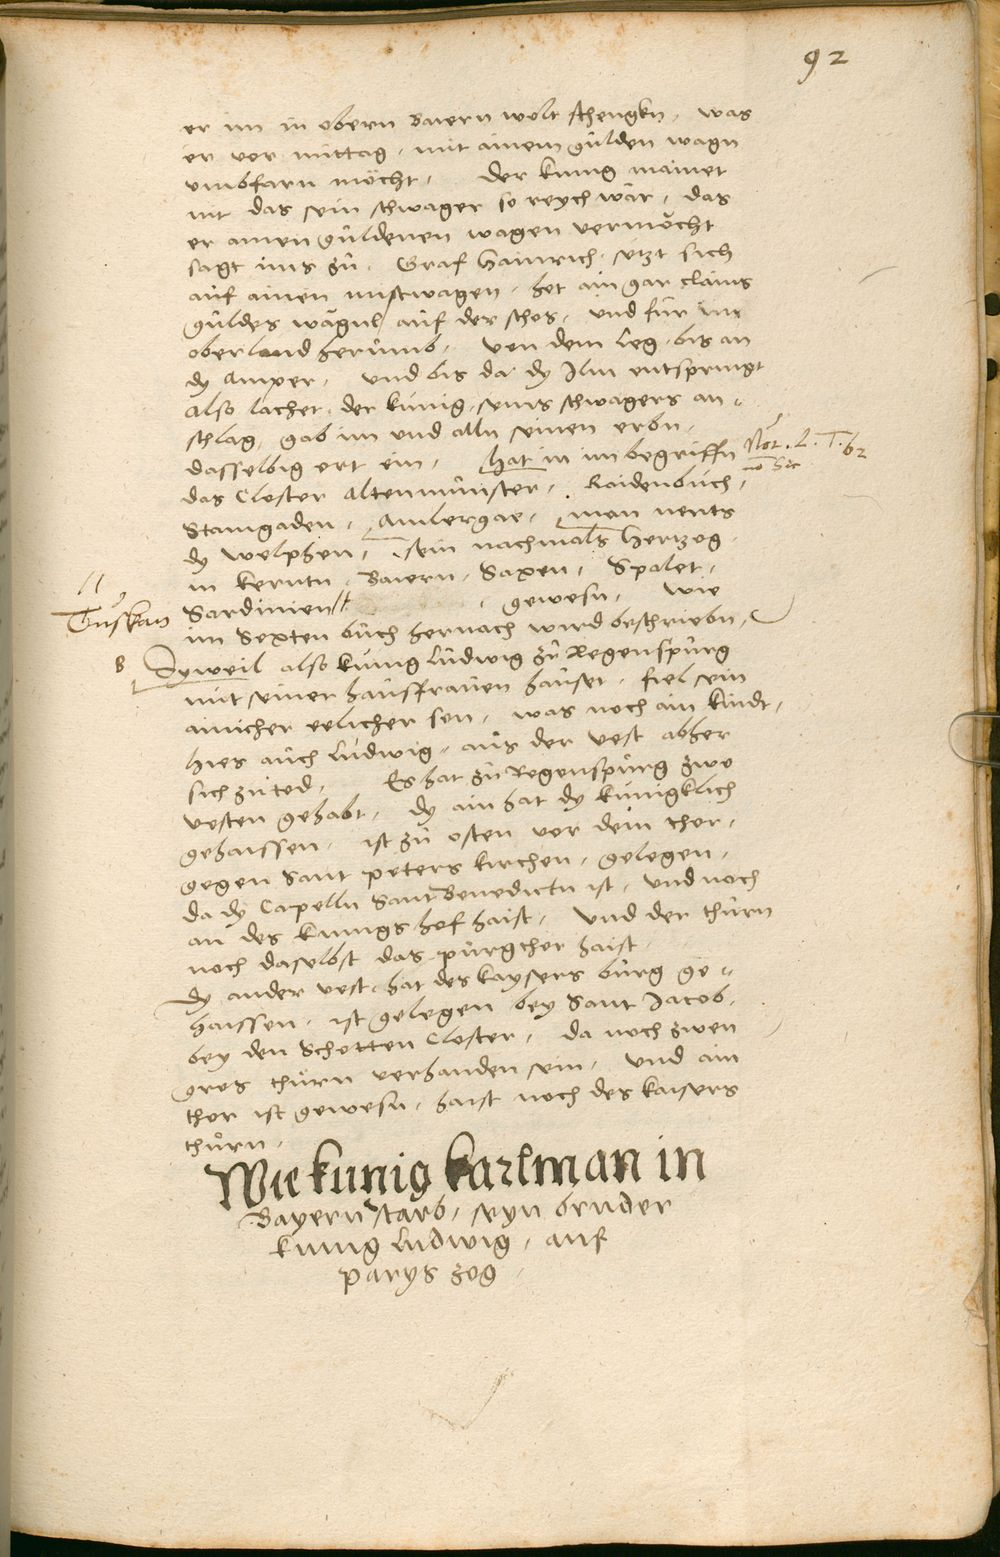 92
er im in obern Baiern wolt schengkn, was
er vor mittag, mit ainem gůlden wagn
umbfarn möcht, Der kunig mainet
nit das sein schwager so reych wär, das
er ainen gůldenen wagen vermöcht
sagt ims zů. Graf Hainrich setzt sich
auf ainen mistwagen, het ain gar clains
gůldes wägnl auf der schos, und fůr im
oberland herůmb, von dem Leg bis an
dy Amper, und bis da dy Ilm entspringt
Also lachet der kůnig, seins schwagers an-
schlag, gab im und alln seinen erbn,
dasselbig ort ein, Hat in im begriffn
das Closter Altenmůnster, Raidenbůch,
Staingaden, Ambergae, man nents
dy welphen, sein nachmals Hertzog
in kerntn, Baiern, Saxen, Spolet,
Tůskan
Sardinien gewesn, wie
im Sexten bůch hernach wird beschriebn,
B Dyweil also kůnig Lůdwig zů Regenspůrg
mit seiner haůsfraůen haůset, fiel sein
ainicher eelicher son, was noch ain kindt,
hies aůch Lůdwig, aůs der vest abher
sich zů tod, Es hat zů Regenspůrg zwo
vesten gehabt, dy ain hat dy kůnigklich
gehaissen, ist zů osten vor dem thor,
gegen Sant peters kirchen, gelegen,
da dy Capelln Sant Benedictn ist, und noch
an des kunigs hof haist, und der thůrn
noch daselbst das půrgthor haist,
dy ander vest hat des kaysers bůrg ge-
haissen, ist gelegen bey Sant Jacob,
bey den Schotten Closter, da noch zwen
gros thůrn verhanden sein, und ain
thor ist gewesn, haist noch des kaisers
thůrn,
Wie kunig karlman in
Bayern starb, seyn bruder
kunig Ludwig, auf
parys zog